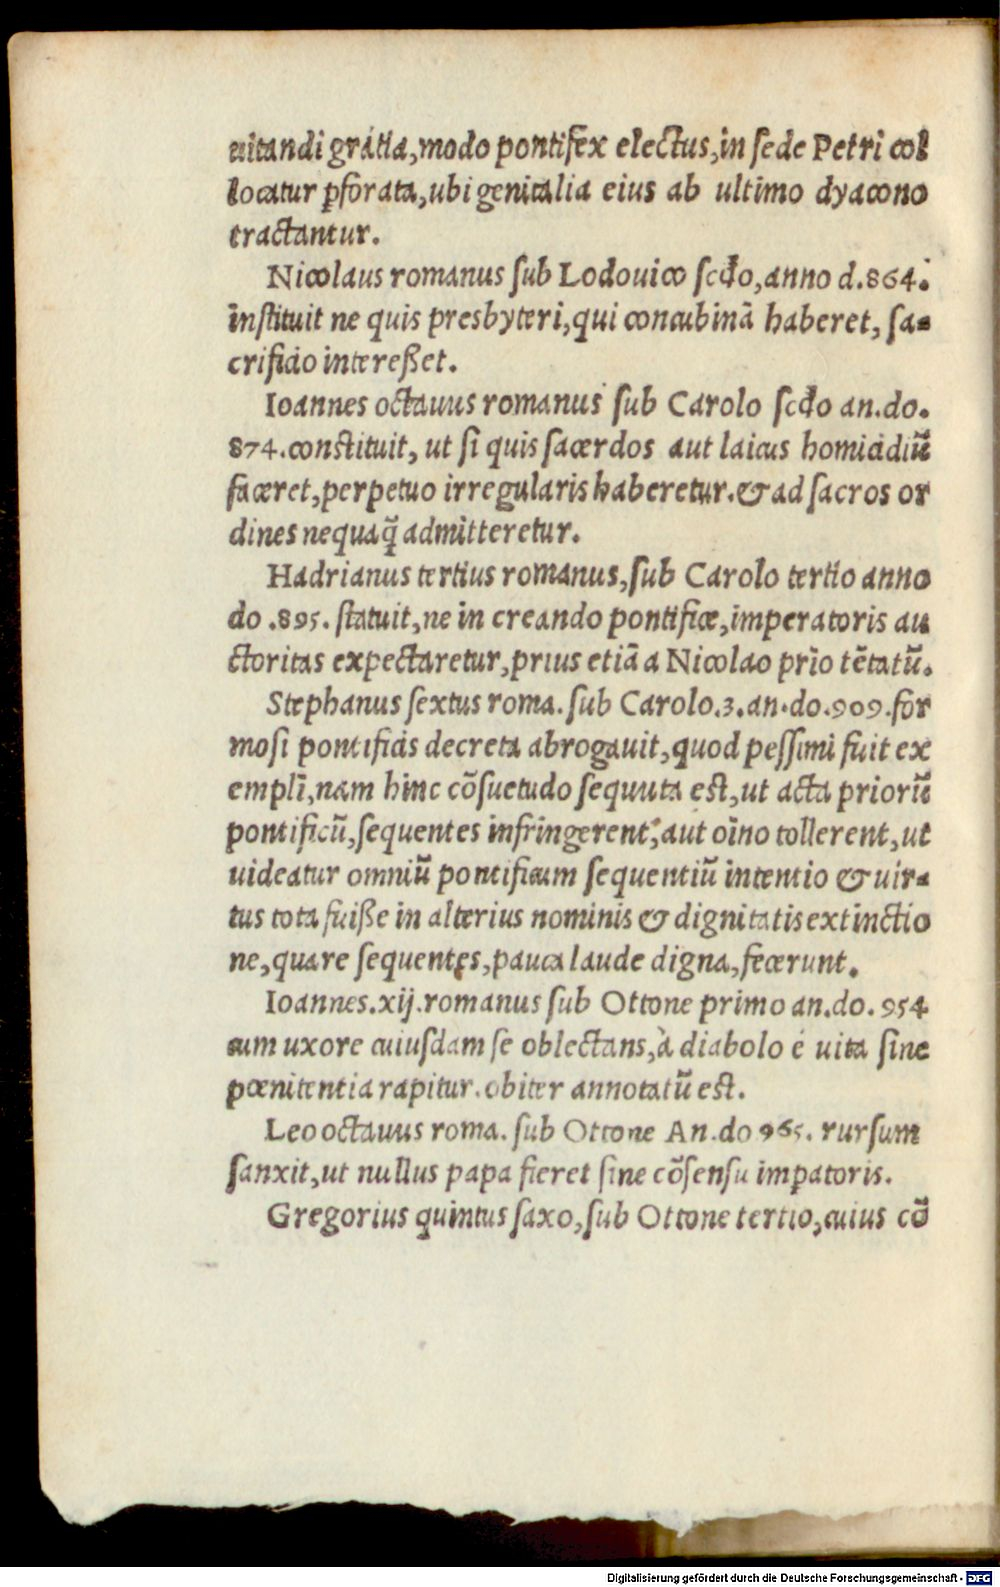 uitandi gratia,modo pontifex electus,in sede Petri col
locatur ꝑforata,ubi genitalia eius ab ultimo dyacono
tractantur.
Nicolaus romanus sub Lodouico scd̄o,anno d.864.
īnstituit ne quis presbyteri,qui concubinā haberet, sa-
crificio interesset.
Ioannes octauus romanus sub Carolo scd̄o an.do.
874.constituit, ut si quis sacerdos aut laicus homicidiū
faceret,perpetuo irregularis haberetur.& ad sacros or
dines nequaq̄ admitteretur.
Hadrianus tertius romanus,sub Carolo tertio anno
do .895. statuit,ne in creando pontifice,imperatoris au
ctoritas expectaretur,prius etiā a Nicolao prīo tētatū.
Stephanus sextus roma. sub Carolo.3.an.do.909.for
mosi pontificis decreta abrogauit,quod pessimi fuit ex
empli,nam hinc cōsuetudo sequuta est,ut acta priorū
pontificū,sequentes infringerent,aut oīno tollerent,ut
uideatur omniū pontificum sequentiū intentio & uir-
tus tota fuisse in alterius nominis & dignitatis extinctio
ne,quare sequentes,pauca laude digna,fecerunt.
Ioannes.xij.romanus sub Ottone primo an.do. 954
cum uxore cuiusdam se oblectans,à diabolo é uita sine
pœnitentia rapitur.obiter annotatū est.
Leo octauus roma. sub Ottone An.do 965. rursum
sanxit,ut nullus papa fieret sine cōsensu imꝑatoris.
Gregorius quintus saxo,sub Ottone tertio,cuius cō
Digitalisierung gefördert durch die Deutsche Forschungsgemeinschaft - DFG